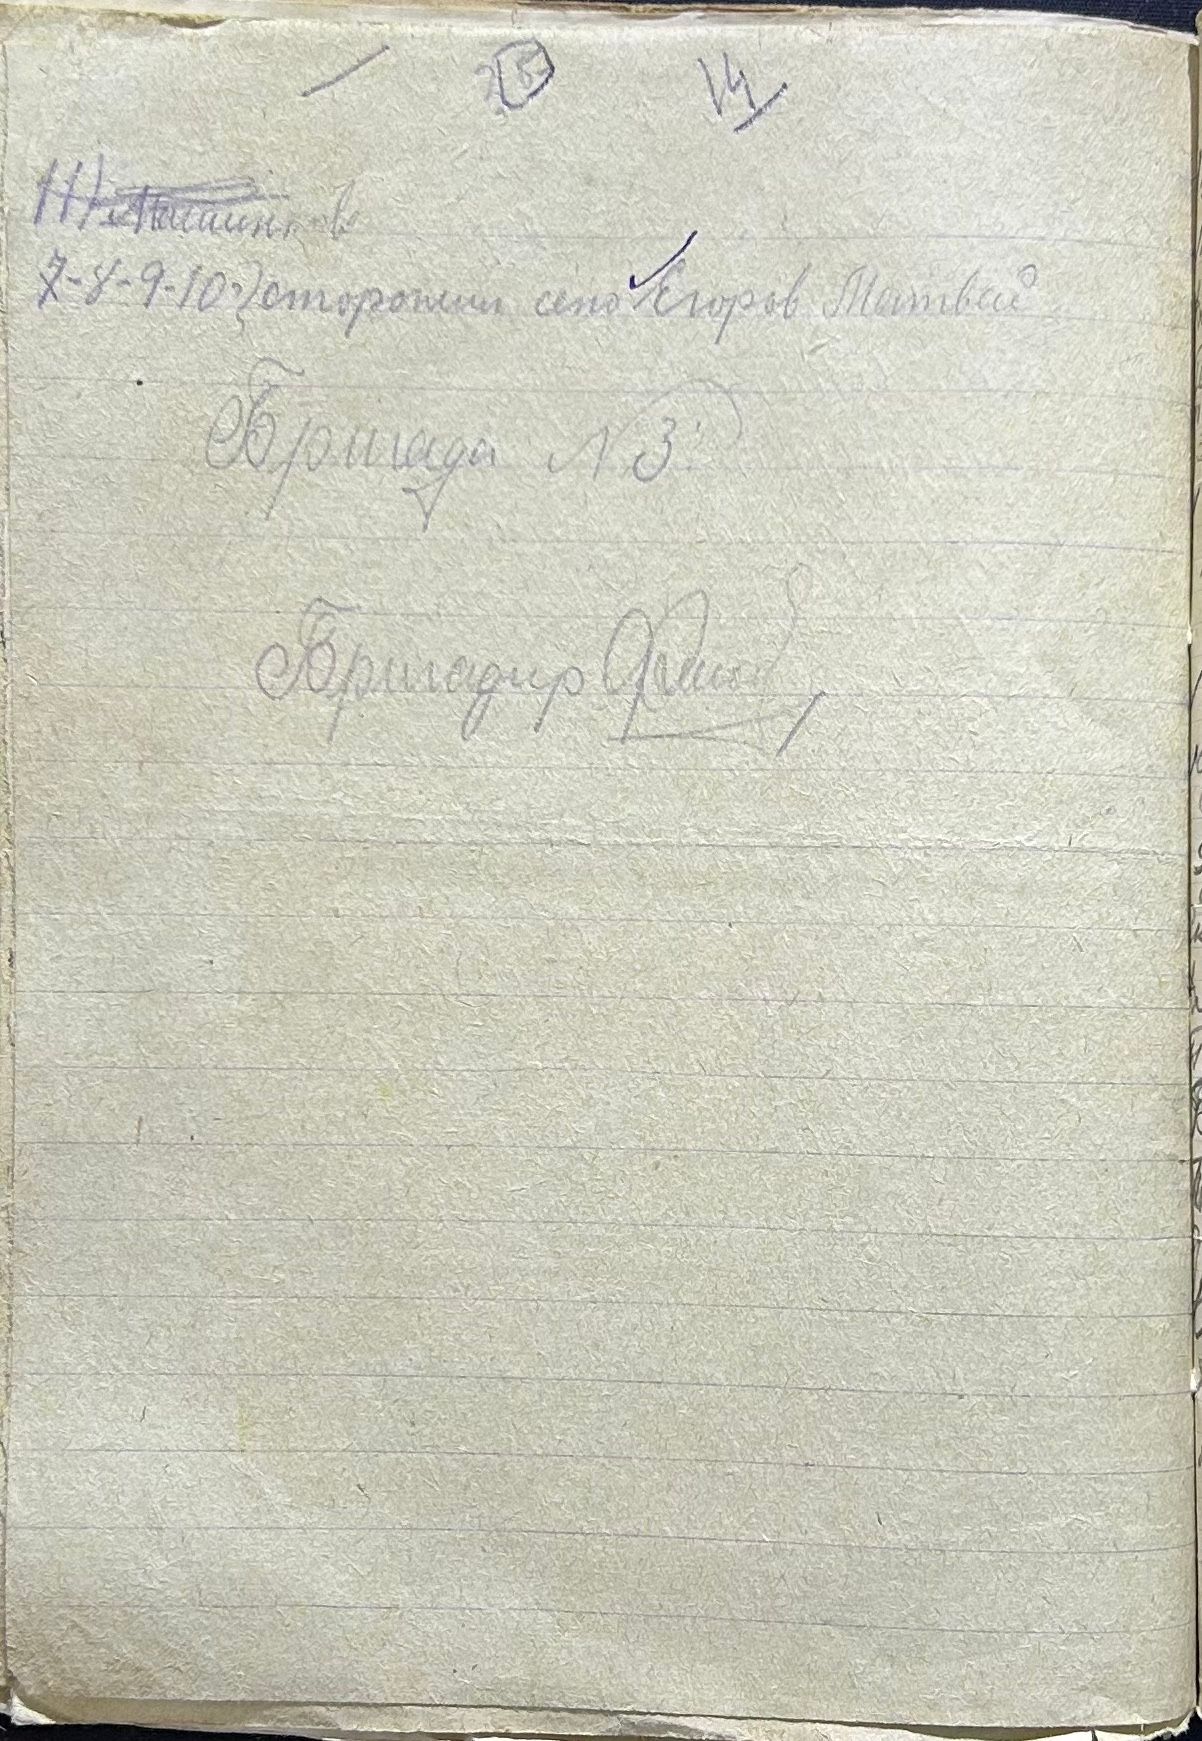 14
7-8-9-10 сторожил сено Егоров Матвей
Бригада N 3
Бригадир